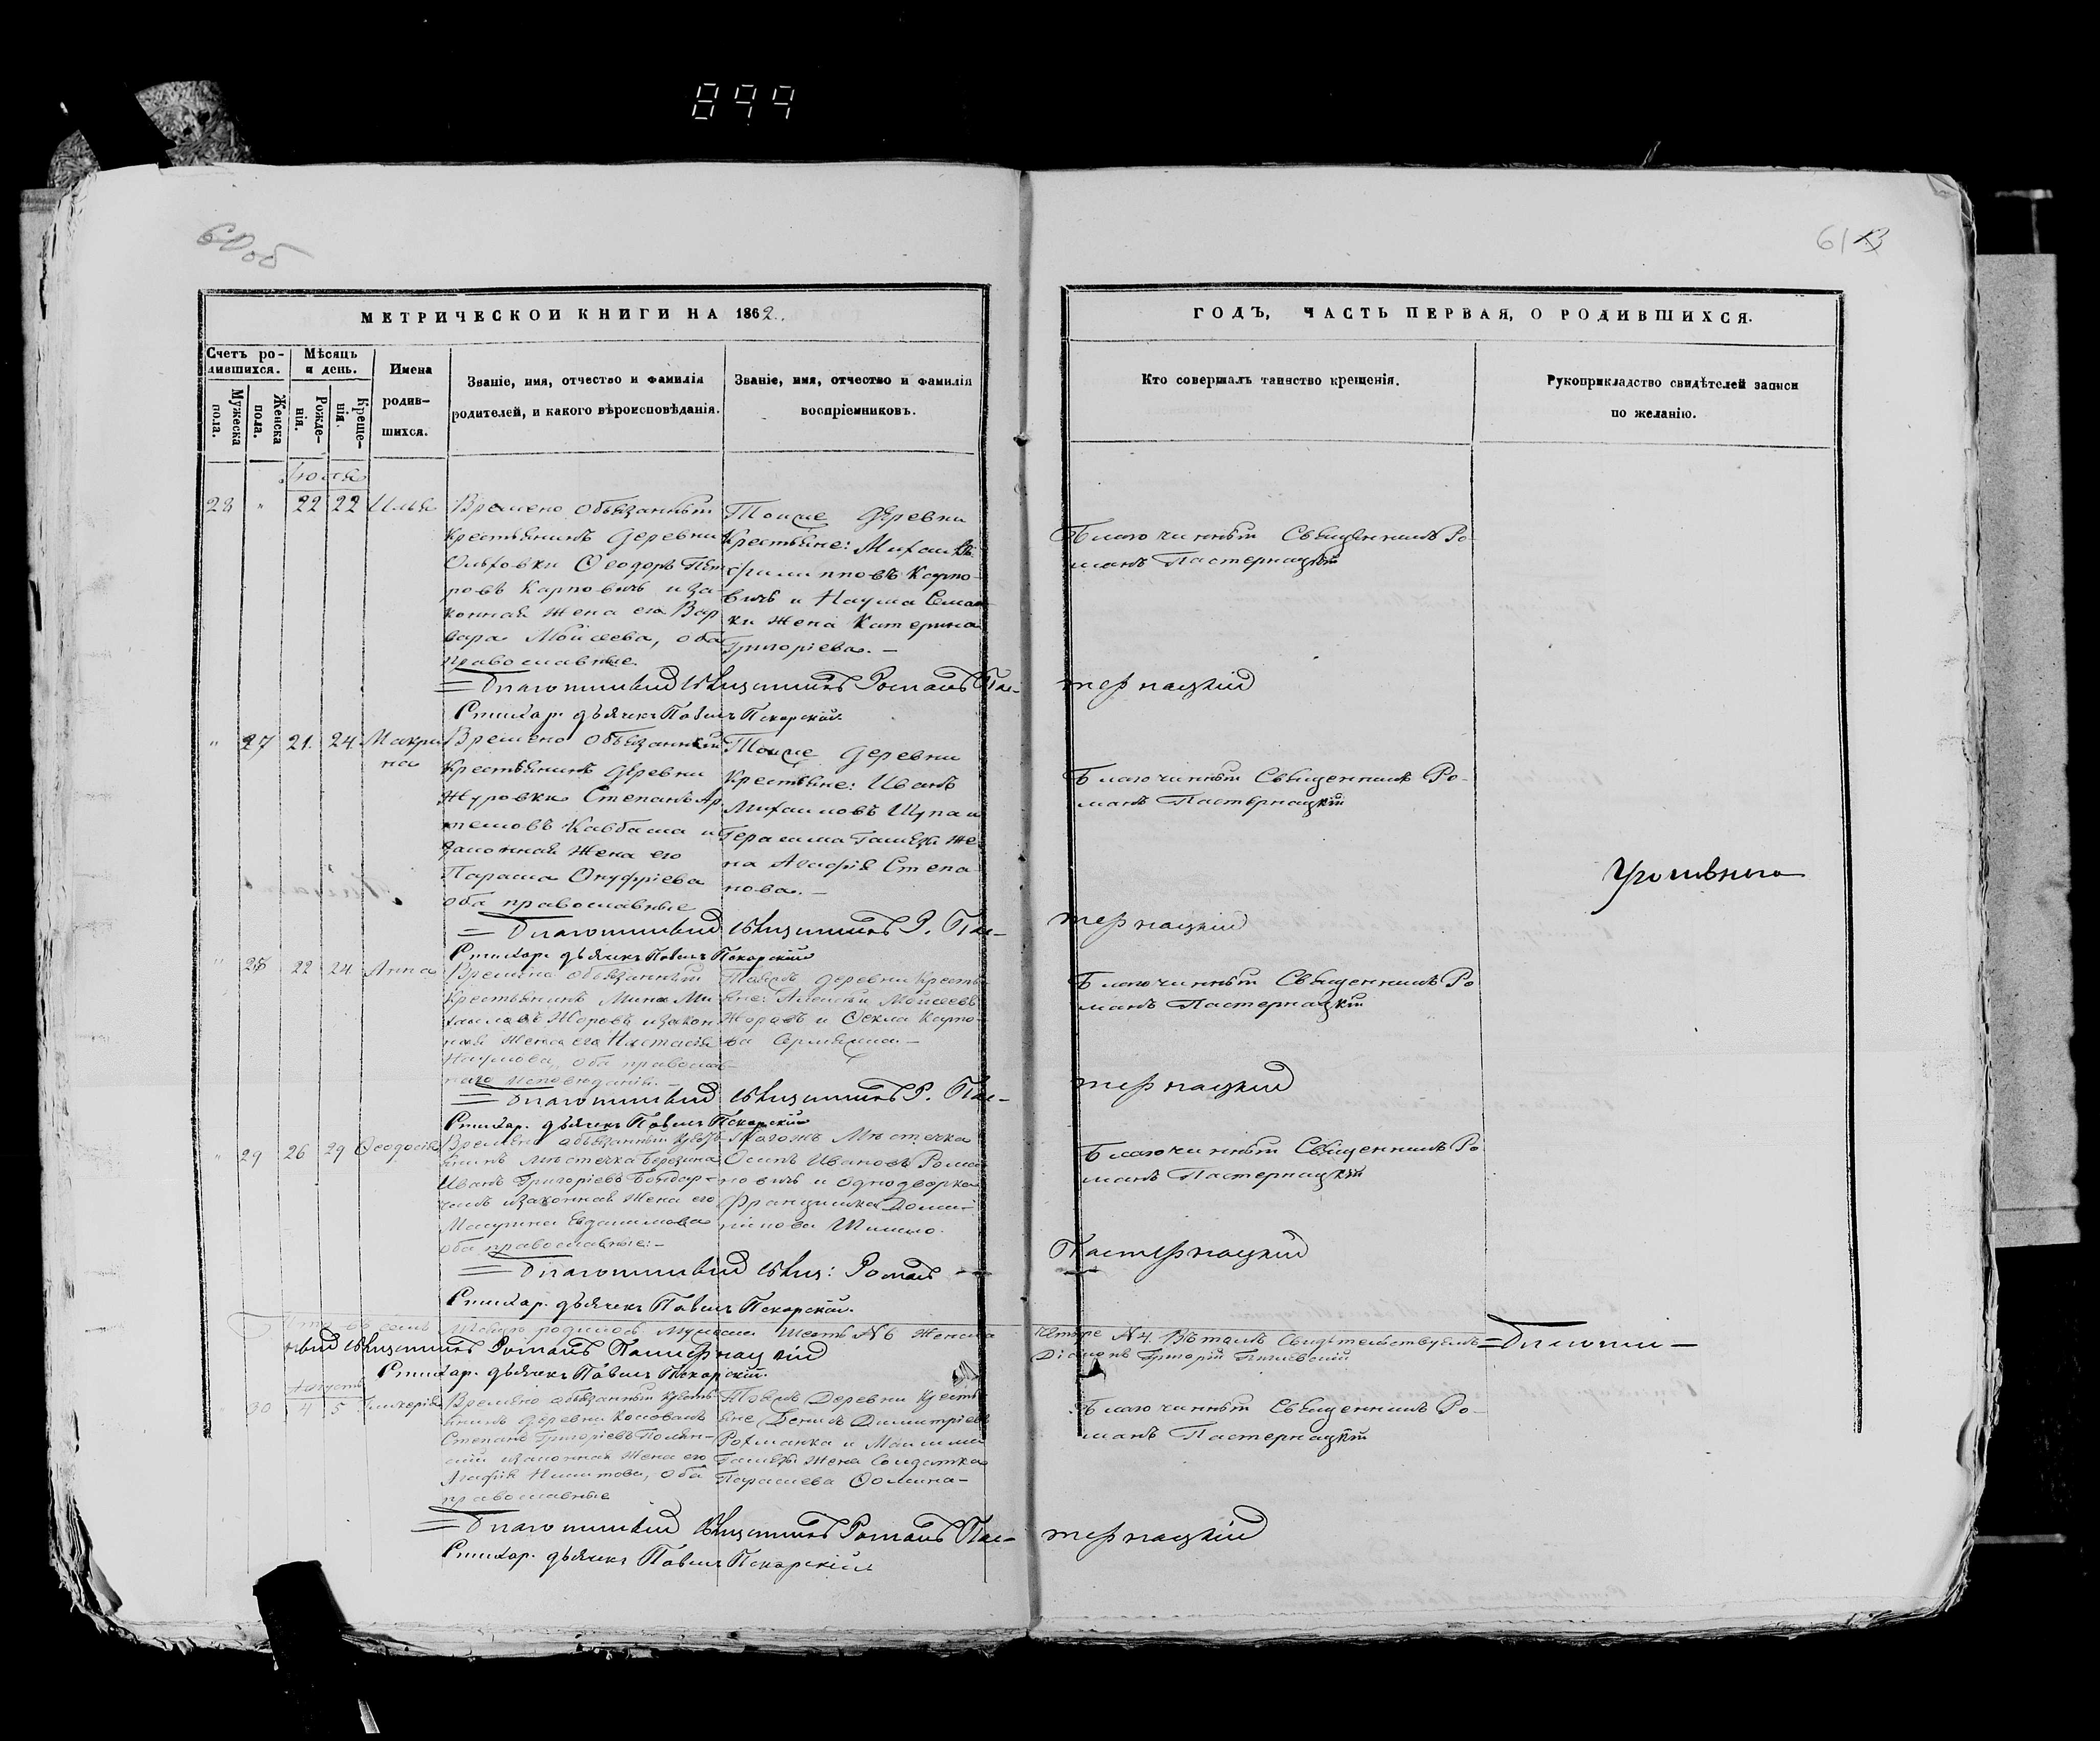 899
60об
61 13
МЕТРИЧЕСКОЙ КНИГИ НА 1862.
ГОДЪ, ЧАСТЬ ПЕРВАЯ, О РОДИВШИХСЯ.
Счетъ ро-
дившихся.
Мѣсяцъ
и день.
Мужеска пола.
Женска пола.
Рожде-
нія.
Креще-
нія.
Имена
родив-
шихся.
Званіе, имя, отчество и фамилія
родителей, и какого вѣроисповѣданія.
Званіе, имя, отчество и фамилія
воспріемниковъ.
Кто совершалъ таинство крещенія.
Рукоприкладство свидѣтелей записи
по желанію.
Іюля
28 " 22 22 Илья
Времено обязанный
крестьянинъ деревни
Ольховки Ѳеодоръ Пет
ровъ Карповичъ и за-
конная жена его Вар
вара Мойсеева, оба
православные.
Тойже деревни
крестьяне: Михаилъ
Филипповъ Карпо-
вичъ и Наума Семаш
ки жена Катерина
Григоріева. —
Благочинный Священникъ Ро
манъ Пастернацкій
= Благочинный Священникъ Романъ Пас-
тернацкій
Стихар. дьячекъ Павелъ Пекарскій.
" 27 21. 24 Макри
на
Времено обязанный
крестьянинъ деревни
Журовки Степанъ Ар
темовъ Кавбаша и
законная жена его
Параска Онуфріева
оба православные
Тойже деревни
крестьяне: Иванъ
Михаиловъ Щупа и
Герасима Галяга же
на Агафія Степа
нова. —
Благочинный Священникъ Ро-
манъ Пастернацкій
= Благочинный Священникъ Р. Пас-
тернацкій
Стихар. дьячекъ Павелъ Пекарскій
" 28 22 24 Анна
Времено обязанный
крестьянинъ Мина Ми
хаиловъ Жоровъ и закон
ная жена его Настасія
Наумова, оба православ-
наго исповеданія. —
Таяжъ деревни кресть
яне: Алексѣй Мойсеевъ
Жоравъ и Ѳекла Карпо-
ва
Благочинный Священникъ Ро
манъ Пастернацкій
= Благочинный Священникъ Р. Пас-
тернацкій
Стихар. дьячекъ Павелъ Пекарскій
" 29 26 29 Ѳеодосія
Времено обязанный кресть
янинъ мѣстечка Березина
Иванъ Григоріевъ Бондар-
чикъ и законная жена его
Макрина Евдакимова
оба православные: —
Тогожъ мѣстечка
Осипъ Ивановъ Рома
новичъ и однодворка
Францишка Доми-
нікова Шишло.
Благочинный Священникъ Ро
манъ Пастернацкій
= Благочинный Свящ: Романъ
Пастернацкій
Стихар. дьячекъ Павелъ Пекарскій.
Итого въ семъ мѣсяцѣ родилось мужеска шесть №6 женска
четыре №4. Въ томъ свидѣтельствуемъ = Благочин-
ный Священникъ Романъ Пастернацкій
Діаконъ Григорій
Стихар. дьячекъ Павелъ Пекарскій.
Августъ
30 4 5 Гликерія
Времено обязанный кресть
янинъ деревни
Степанъ Григоріевъ
и законная жена его
Агафія Никитова, оба
православные
Тояжъ деревни кресть
яне Денисъ Димитріевъ
Рохманка и
Галяги жена солдатка
Парасцева Ѳомина —
Благочинный Священникъ Ро-
манъ Пастернацкій
= Благочинный Священникъ Романъ Пас-
тернацкій
Стихар. дьячекъ Павелъ Пекарскій